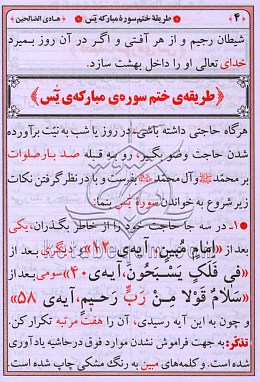 ﴿۴﴾ طریقۀ ختم سورۀ مبارکه یٰس هـادی الضالحین
شیطان رجیم و از هر آفتی و اگـر در آن روز بمیرد
خدای تعالی او را داخل بهشت سازد.
﴿طریقه‌ی ختم سوره‌ی مبارکه‌ی یٰس﴾
هرگاه حاجتی داشته باشی، در روز یا شب به نیّت برآورده
شدن حاجت وضو بگیر، رو به قبله صـد بـار صلوات
بر محمّد ﷺ و آل محمّد بفرست و با در نظر گرفتن نکات
زیر شروع به خواندن سورۀ یٰس بنما:
۱ـ در سه جا حاجت خود را از خاطر بگذران، یکی
بعد از «اِمامٍ مُبین، آیه‌ی ۱۲» دیگری بـعد از
«فی فَلَکٍ یَسْبَحُونَ، آیه‌ی ۴۰» سومی بعد از
«سَلامٌ قَوْلا مِـنْ رَبٍّ رَحـیمٍ، آیـه‌ی ۵۸»
و چون به این آیه رسیدی، آن را هفت مرتبه تکرار کن.
تذکّر: به جهت فراموش نشدن موارد فوق در حاشیه یادآوری
شده است و کلمه‌های مبین به رنگ مشکی چاپ شده است